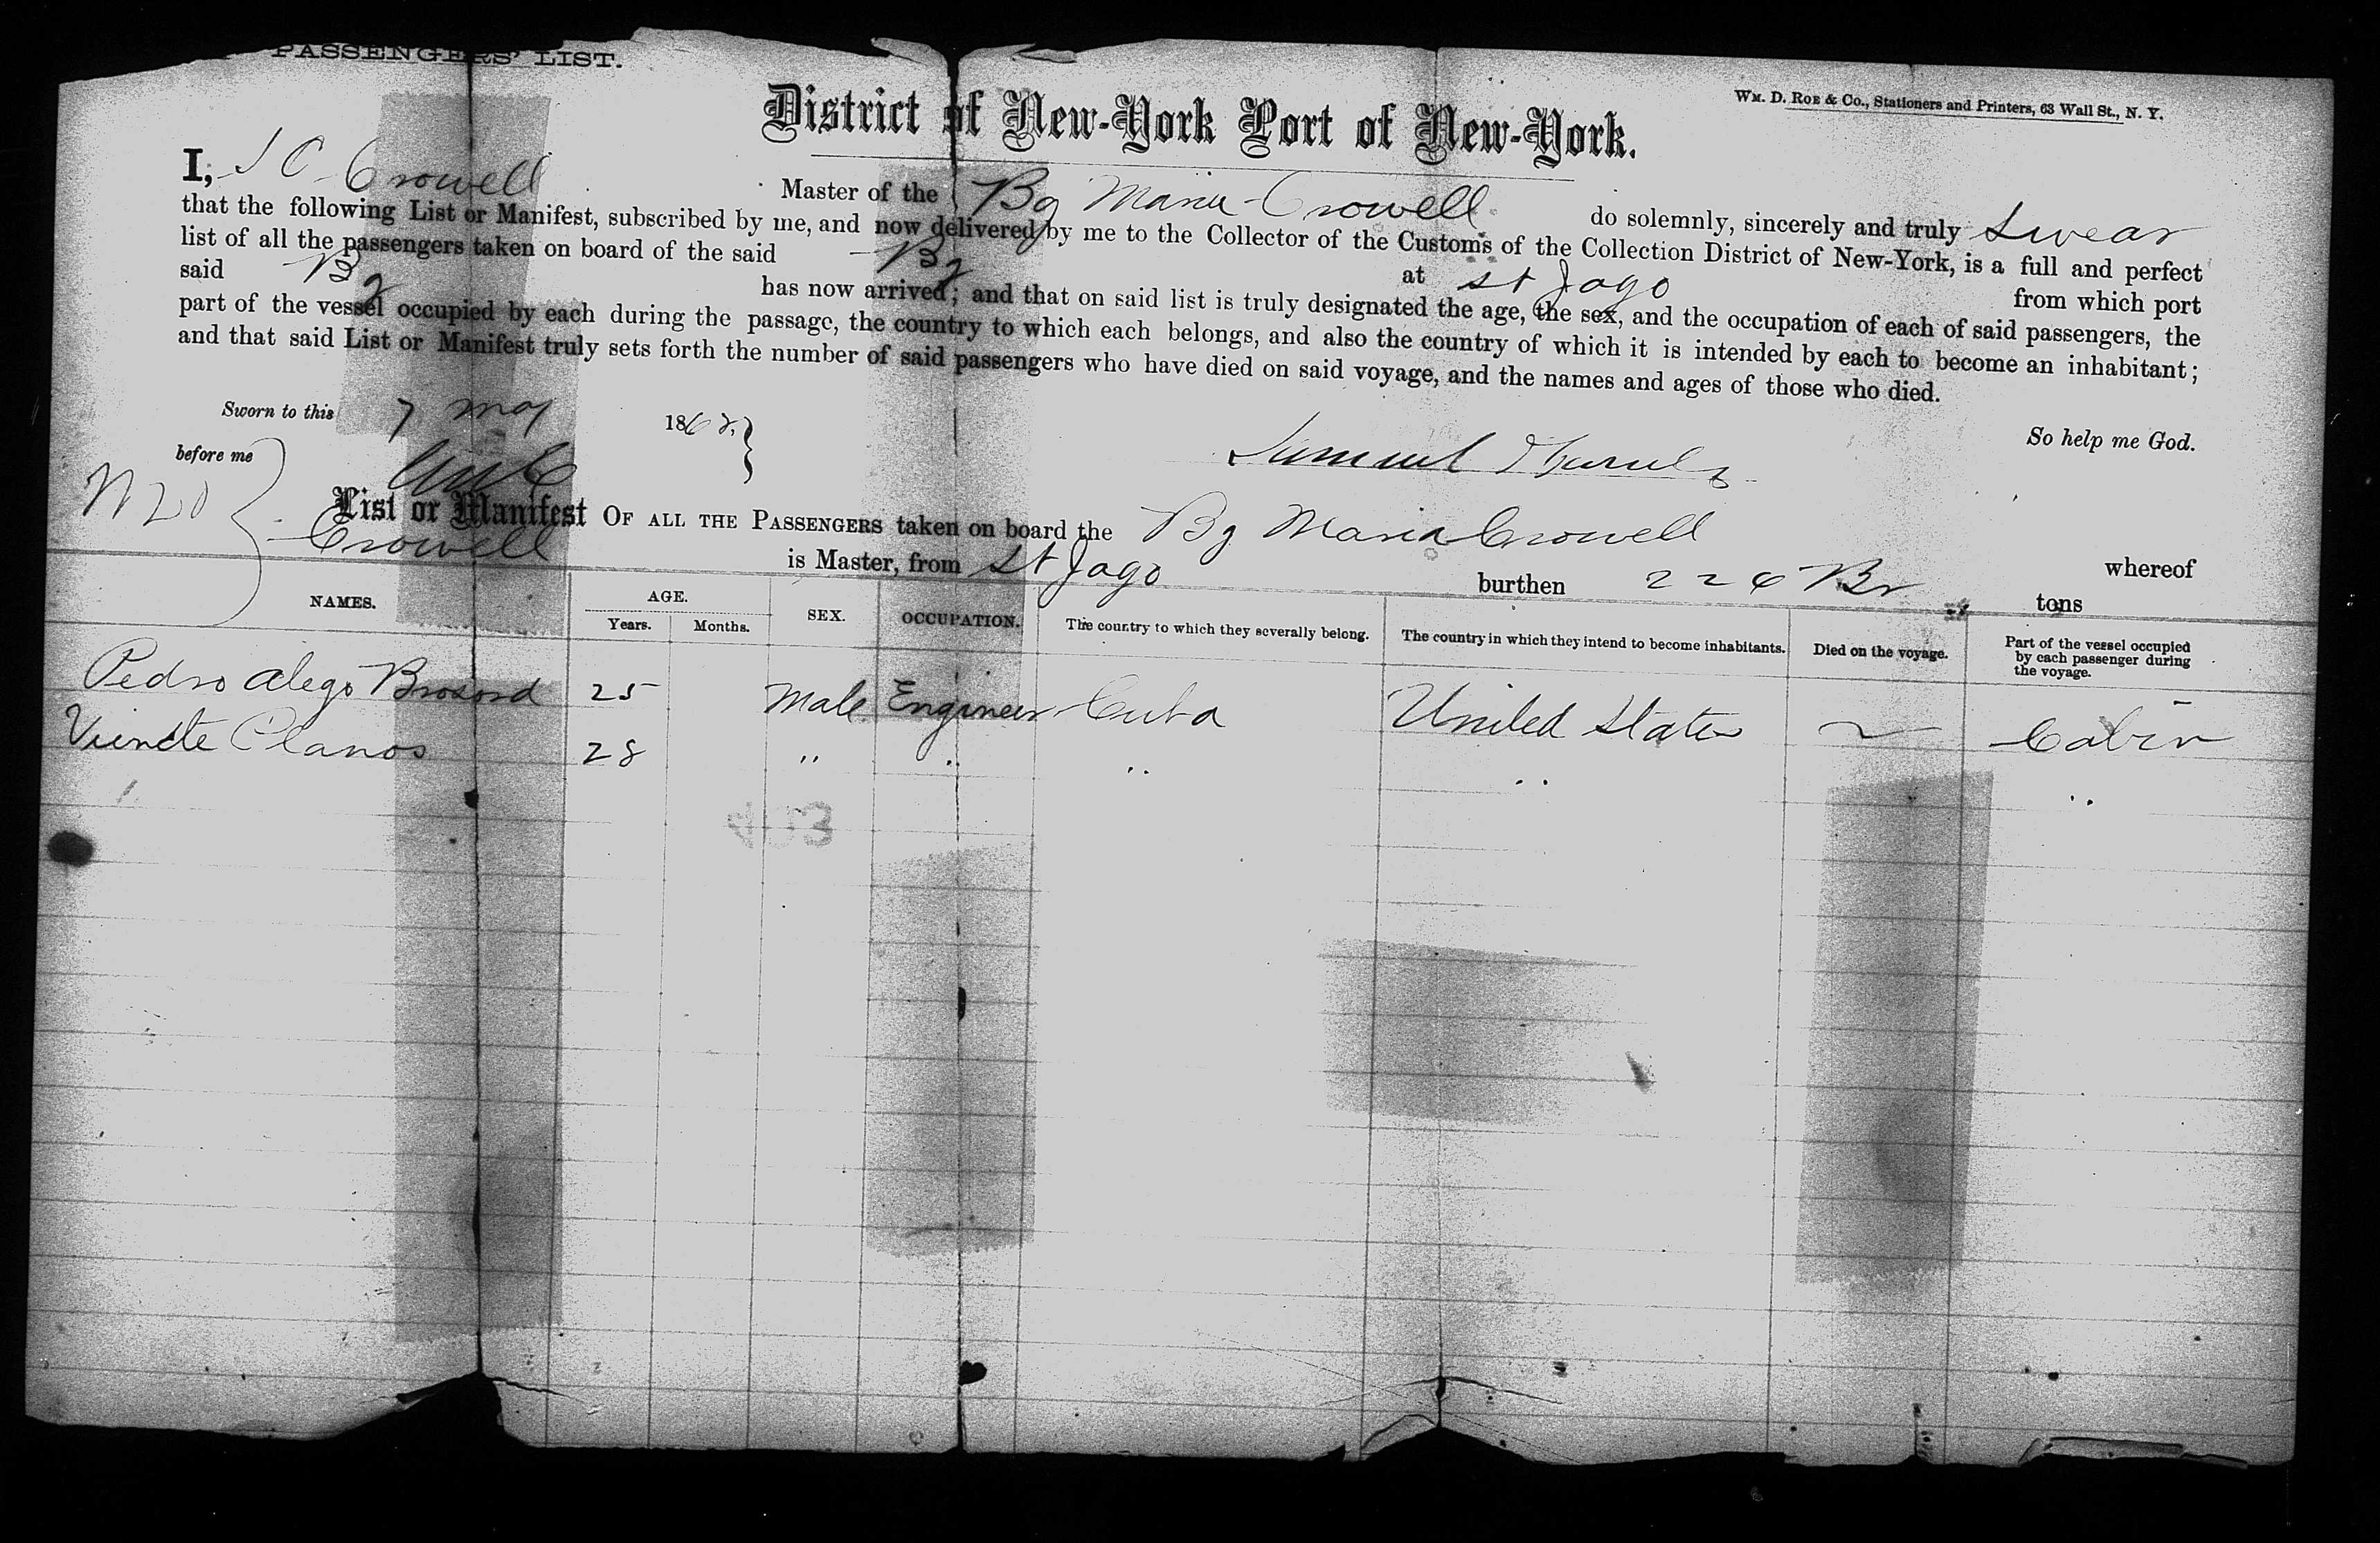 PASSENGERS' LIST.
Wm. D. Roe & Co., Stationers and Printers, 63 Wall St., N. Y.
District of New-York Port of New-York.
I, S C Crowell Master of the Bg Maria Crowell do solemnly, sincerely and truly Swear
that the following List or Manifest, subscribed by me, and now delivered by me to the Collector of the Customs of the Collection District of New-York, is a full and perfect
list of all the passengers taken on board of the said Bg at St Jago from which port
said Bg has now arrived; and that on said list is truly designated the age, the sex, and the occupation of each of said passengers, the
part of the vessel occupied by each during the passage, the country to which each belongs, and also the country of which it is intended by each to become an inhabitant;
and that said List or Manifest truly sets forth the number of said passengers who have died on said voyage, and the names and ages of those who died.
Sworn to this 7 may 1868. So help me God.
before me Samuel
List or Manifest OF ALL THE PASSENGERS taken on board the Bg Maria Crowell whereof
Crowell is Master, from St Jago burthen 226 Br tons
NAMES. AGE. Years. Months. SEX. OCCUPATION. The country to which they severally belong. The country in which they intend to become inhabitants. Died on the voyage. Part of the vessel occupied by each passenger during the voyage.
Pedro Alego 25 Male Engineer Cuba United States Cabin
Llanos 28 " " " " "
403